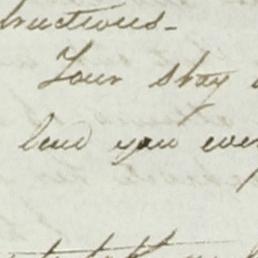 tructions-
Your stay
lend you eve